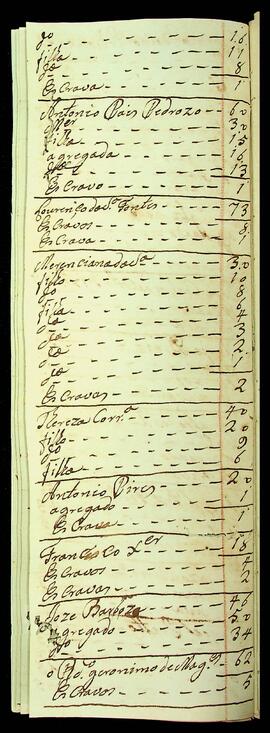 do — 16
filla — 11
da — 8
Escrava — 1
Antonio Pais Pedrozo — 60
Mer — 30
filla — 15
agregada — 16
13
Escravo — 1
Lourenço da Va Fontes — 73
Escravos — 8
Escrava — 1
Merenciana da Va — 30
fillo — 10
do — 8
do — 6
filla — 4
da — 3
da — 2
da — 1
da
Escravas — 2
Thereza Corra — 40
fillo — 20
do — 9
filla — 6
Antonio Pires — 20
agregado — 1
Escrava — 1
Francisco Xer — 18
Escravos — 4
Escravas — 2
Joze Barboza — 46
agregado — 30
do — 34
o geronimo de Mags — 62
Escravos — 5